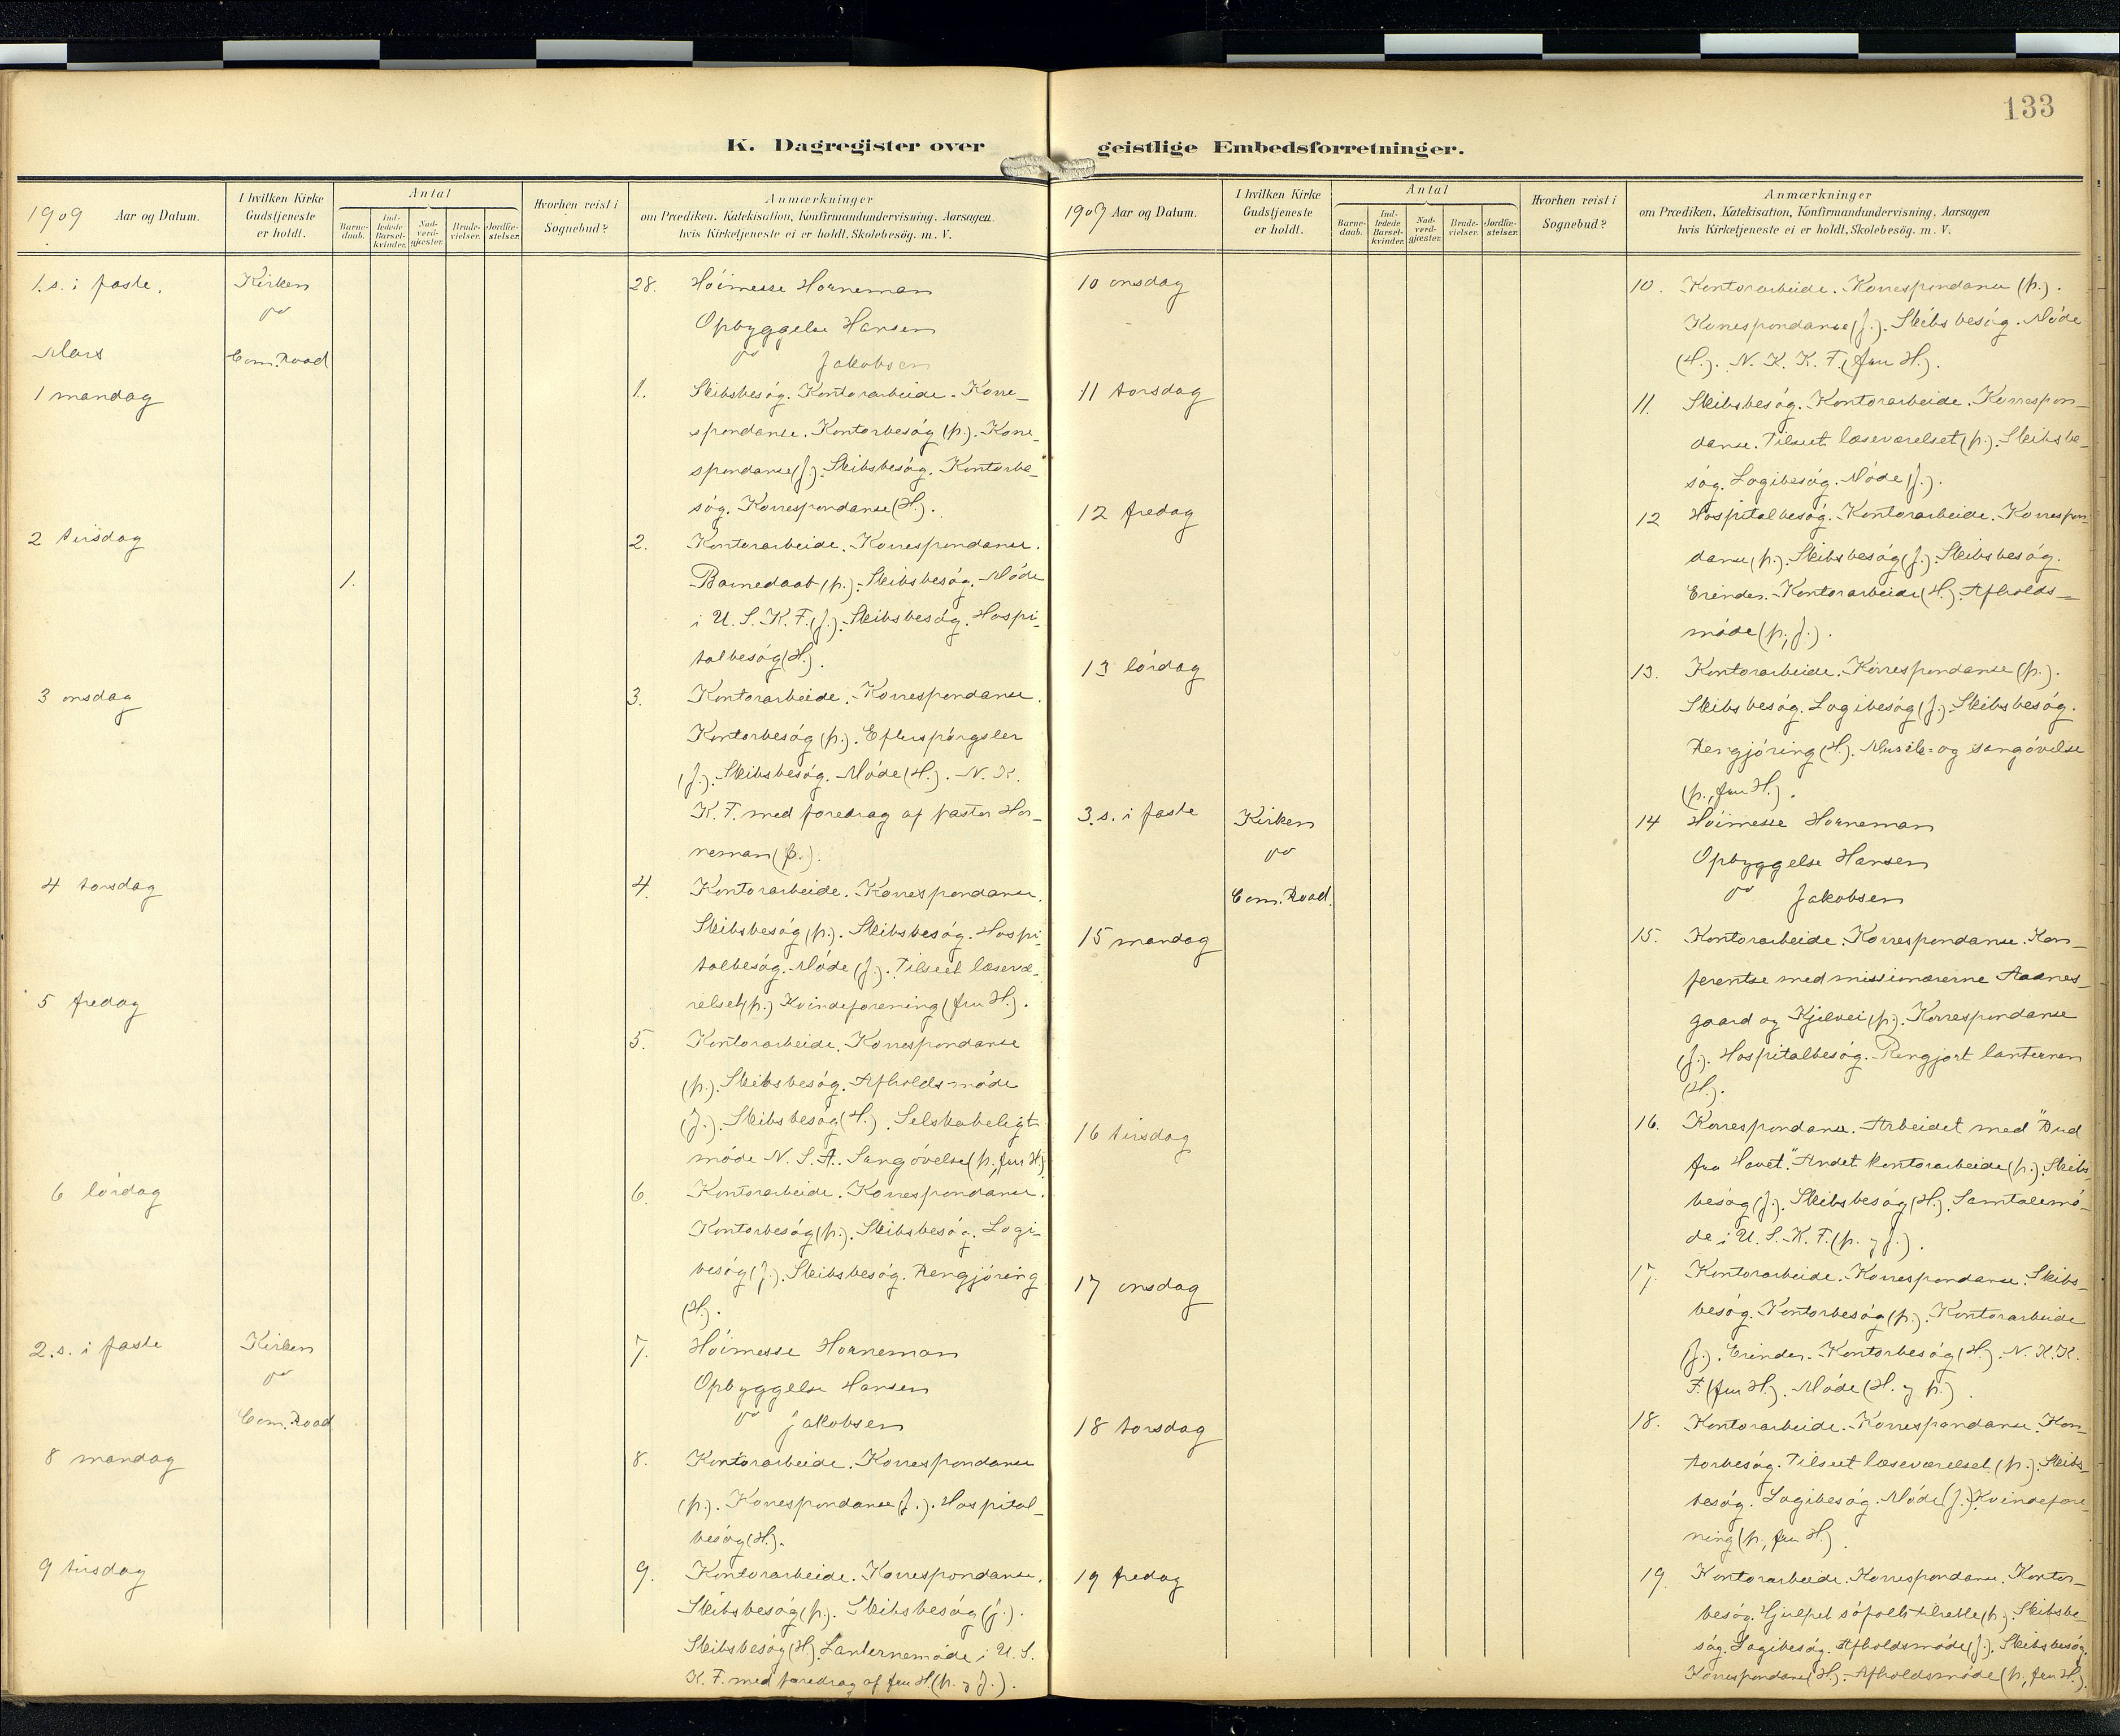 133
K. Dagregister over
geistlige Embedsforretninger.
1909 Aar og Datum.
I hvilken Kirke
Gudstjeneste
er holdt.
Antal
Barne-
daab.
Ind-
ledede
Barsel-
kvinder.
Nad-
verd-
gjæster.
Brude-
vielser.
Jordfæ-
stelser.
Hvorhen reist i
Sognebud?
Anmærkninger
om Prædiken, Katekisation, Konfirmandundervisning, Aarsagen
hvis Kirketjeneste ei er holdt, Skolebesög. m. V.
1. s. i faste. Kirken 28. Höimesse Horneman
do Opbyggelse Hansen
Mars Com. Road do Jakobsen
1 mandag 1. Skibsbesög. Kontorarbeide. Korre-
spondanse. Kontorbesög (p.). Korre-
spondanse (J.). Skibsbesög. Kontorbe-
sög. Korrespondanse (H.).
2 tirsdag 2. Kontorarbeide. Korrespondanse.
1. Barnedaab (p.). Skibsbesög. Möde
i U. S. K. F. (J.). Skibsbesög. Hospi-
talbesög (H.).
3 onsdag 3. Kontorarbeide. Korrespondanse.
Kontorbesög (p.). Efterspörgsler
(J.). Skibsbesög. Möde (H.). N. K.
K. F. med foredrag af pastor Hor-
neman (p.).
4 torsdag 4. Kontorarbeide. Korrespondanse.
Skibsbesög (p.). Skibsbesög. Hospi-
talbesög. Möde (J.). Tilseet læsevæ-
relset (p.) Kvindeforening (fru H.).
5 fredag 5. Kontorarbeide. Korrespondanse
(p.). Skibsbesög. Afholdsmöde
(J.). Skibsbesög (H.). Selskabeligt
möde N. S. A. Sangövelse (p., fru H.)
6 lördag 6. Kontorarbeide. Korrespondanse.
Kontorbesög (p.). Skibsbesög. Logi-
besög (J.). Skibsbesög. Rengjöring
(H.).
2. s. i faste Kirken 7. Höimesse Horneman
do Opbyggelse Hansen
Com. Road do Jakobsen
8 mandag 8. Kontorarbeide. Korrespondanse
(p.). Korrespondanse (J.). Hospital-
besög (H.).
9 tirsdag 9. Kontorarbeide. Korrespondanse.
Skibsbesög (p.). Skibsbesög (J.).
Skibsbesög (H.). Lanternemöde i U. S.
K. F. med foredrag af fru H. (p. og J.).
1909 Aar og Datum.
I hvilken Kirke
Gudstjeneste
er holdt.
Antal
Barne-
daab.
Ind-
ledede
Barsel-
kvinder.
Nad-
verd-
gjæster.
Brude-
vielser.
Jordfæ-
stelser.
Hvorhen reist i
Sognebud?
Anmærkninger
om Prædiken, Katekisation, Konfirmandundervisning, Aarsagen
hvis Kirketjeneste ei er holdt, Skolebesög. m. V.
10 onsdag 10. Kontorarbeide. Korrespondanse (p.).
Korrespondanse (J.). Skibsbesög. Möde
(H.). N. K. K. F. (fru H.).
11 torsdag 11. Skibsbesög. Kontorarbeide. Korrespon-
danse. Tilseet læseværelset (p.). Skibsbe-
sög. Logibesög. Möde (J.).
12 fredag 12 Hospitalbesög. Kontorarbeide. Korrespon-
danse (p.). Skibsbesög (J.). Skibsbesög.
Erinder. Kontorarbeide (H.). Afholds-
möde (p., J.).
13 lördag 13. Kontorarbeide. Korrespondanse (p.).
Skibsbesög. Logibesög (J.). Skibsbesög.
Rengjöring (H.). Musik- og sangövelse
(p., fru H.).
3. s. i faste Kirken 14 Höimesse Horneman
do Opbyggelse Hansen
Com. Road. do Jakobsen
15 mandag 15. Kontorarbeide. Korrespondanse. Kon-
ferentse med missionærerne Aadnes-
gaard og Kjelvei (p.). Korrespondanse
(J.). Hospitalbesög. Rengjort lanternen
(H.).
16 tirsdag 16. Korrespondanse. Arbeidet med "Bud
fra Havet." Andet kontorarbeide (p.). Skibs-
besög (J.). Skibsbesög (H.). Samtalemö-
de i U. S. K. F. (p. og J.).
17 onsdag 17. Kontorarbeide. Korrespondanse. Skibs-
besög. Kontorbesög (p.). Kontorarbeide
(J.). Erinder. Kontorbesög (H.). N. K. K.
F. (fru H.). Möde (H. og p.).
18 torsdag 18. Kontorarbeide. Korrespondanse. Kon-
torbesög. Tilseet læseværelset (p.). Skibs-
besög. Logibesög. Möde (J.). Kvindefore-
ning (p., fru H.).
19 fredag 19. Kontorarbeide. Korrespondanse. Kontor-
besög. Hjulpet söfolk tilrette (p.). Skibsbe-
sög. Logibesög. Afholdsmöde (J.). Skibsbesög.
Korrespondanse (H.). Afholdsmöde (p., fru H.).